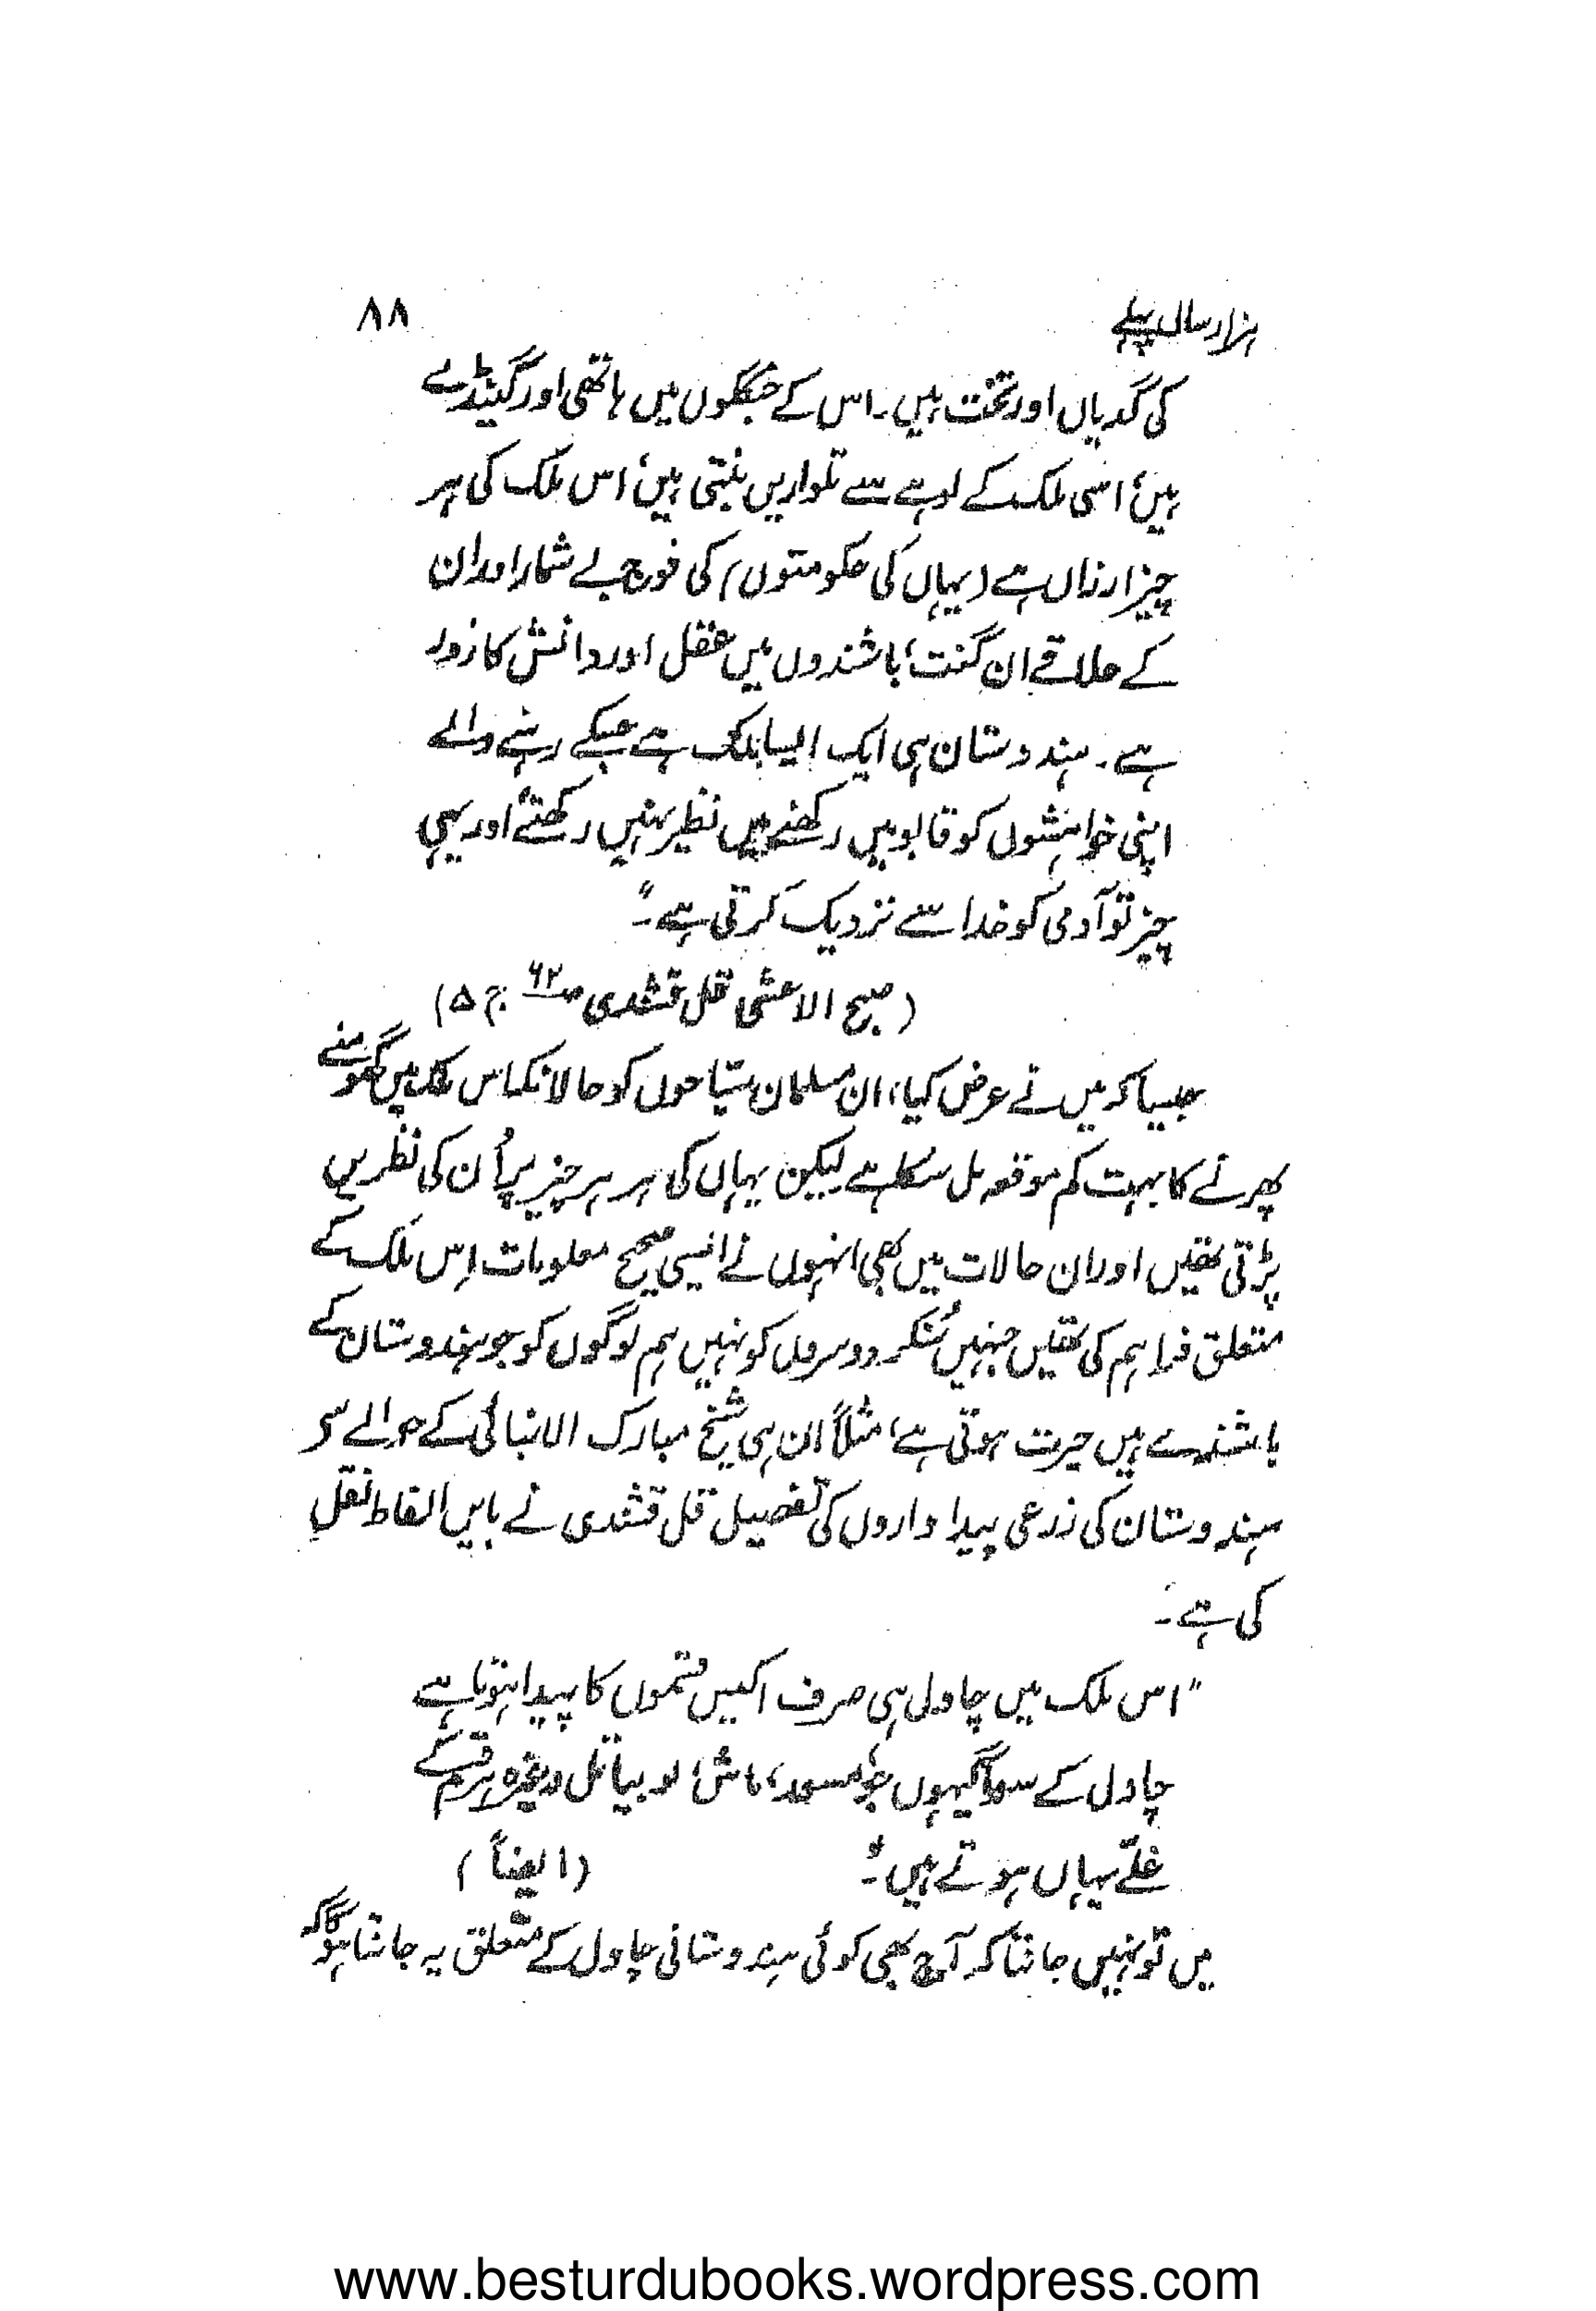 ہزار سال پہلے ۸۸
کی گدیاں اور تخت ہیں۔ اس کے جنگلوں میں ہاتھی اور گینڈے
ہیں، اسی ملک کے لوہے سے تلواریں بنتی ہیں، اس ملک کی ہر
چیز ارزاں ہے (یہاں کی حکومتوں) کی فوج بے شمار اور ان
کے علاقے ان گنت، باشندوں میں عقل اور دانش کا زور
ہے۔ ہندوستان ہی ایک ایسا ملک ہے جسکے رہنے والے
اپنی خواہشوں کو قابو میں رکھنے میں نظیر نہیں رکھتے، اور یہی
چیز تو آدمی کو خدا سے نزدیک کرتی ہے۔"
(صبح الاعشی قل قشندی صـ۶۲ ج ۵)
جیسا کہ میں نے عرض کیا، ان مسلمان سیّاحوں کو حالانکہ اس ملک میں گھومنے
پھرنے کا بہت کم موقعہ مل سکا ہے لیکن یہاں کی ہر ہر چیز پر اُن کی نظریں
پڑتی تھیں اور ان حالات میں بھی انہوں نے ایسی صحیح معلومات اِس مُلک کے
متعلق فراہم کی تھیں جنہیں سُنکر دوسروں کو نہیں ہم لوگوں کو جو ہندوستان کے
باشندے ہیں حیرت ہوتی ہے، مثلاً ان ہی شیخ مبارک الانبائی کے حوالے سے
ہندوستان کی زرعی پیداواروں کی تفصیل قل قشندی نے بایں الفاظ نقل
کی ہے۔
"اس ملک میں چاول ہی صرف اکیس قسموں کا پیدا ہوتا ہے
چاول کے سوا گیہوں، جو، مسور، ماش، لوبیا، تل وغیرہ ہر قسم کے
غلّے یہاں ہوتے ہیں۔" (ایضاً)
میں تو نہیں جانتا کہ آج بھی کوئی ہندوستانی چاول کے متعلق یہ جانتا ہوگا کہ
www.besturdubooks.wordpress.com